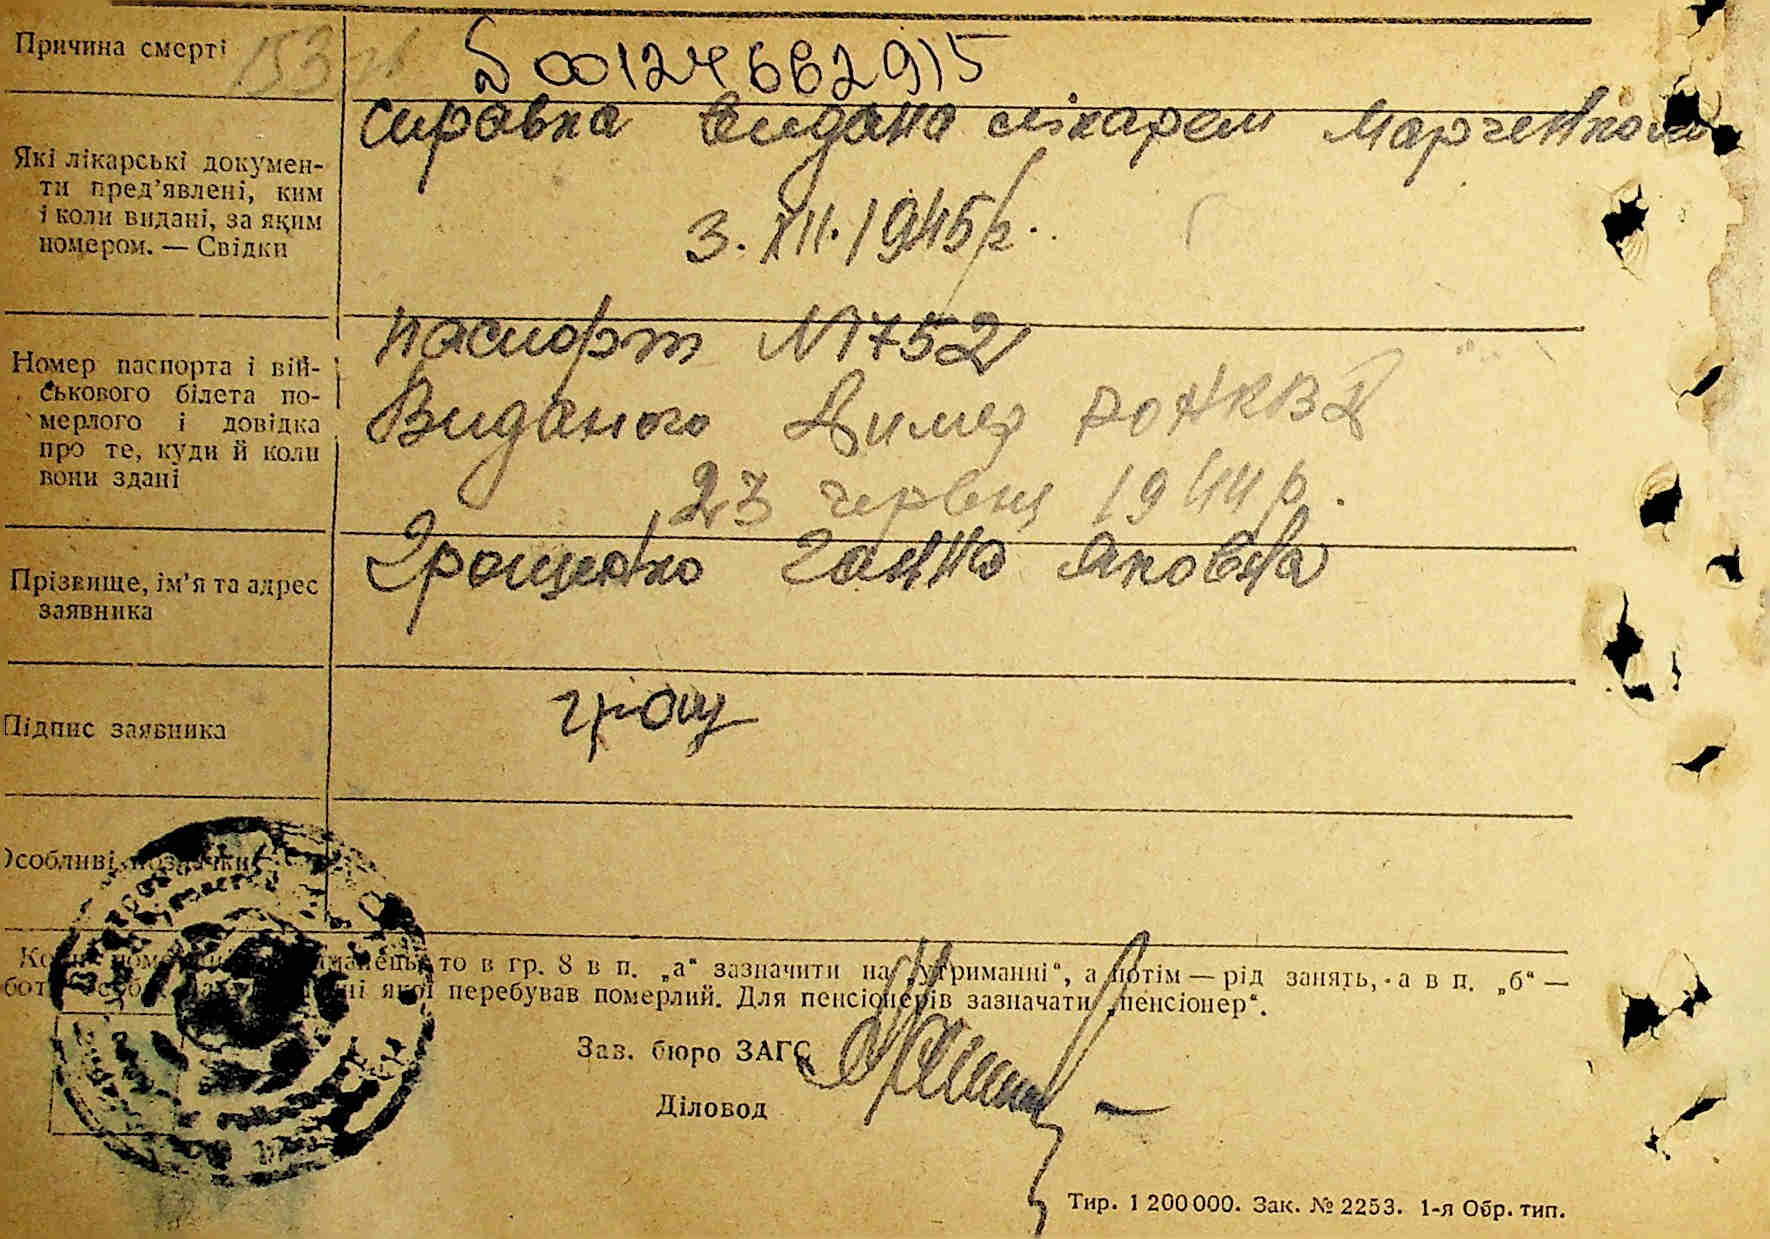 Причина смерті
S00124662915
Які лікарські докумен-
ти пред'явлені, ким
і коли видані, за яким
номером. — Свідки
справка видана лікарем Марченком
3.XII.1945р.
Номер паспорта і вій-
ськового білета по-
мерлого і довідка
про те, куди й коли
вони здані
паспорт N 752
Виданого Димер РОНКВД
23 червня 1944р.
Прізвище, ім'я та адрес
заявника
Грощенко Ганна Яковна
Підпис заявника
грощ
Особливі позначки
то в гр. 8 в п. „а“ зазначити на „утриманні“, а потім — рід занять, а в п. „б“ —
якої перебував померлий. Для пенсіонерів зазначати „пенсіонер“.
Зав. бюро ЗАГС
Діловод
Тир. 1 200 000. Зак. № 2253. 1-я Обр. тип.